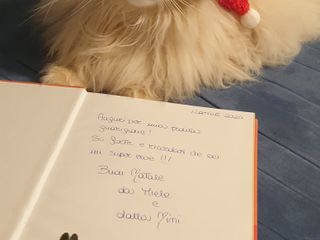 NATALE 2020
Auguri per una pronta
guarigione!
Sii forte e ricordati che sei
un super eroe !!!
Buon Natale
da Miele
e
dalla Mimi